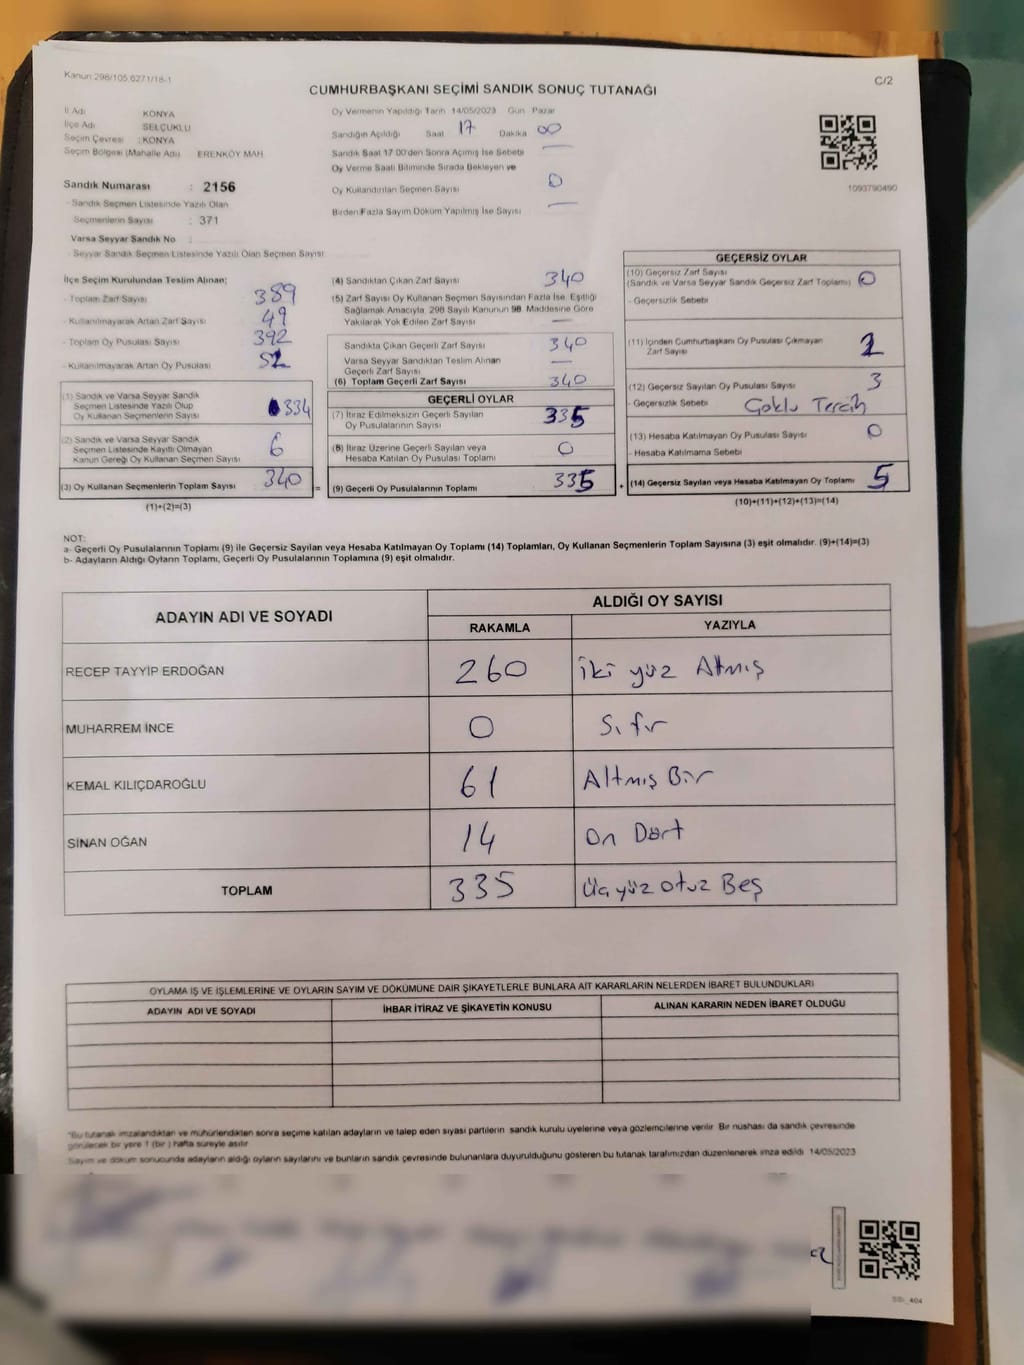 Kanun:298/105,6271/18-1
C/2
CUMHURBAŞKANI SEÇİMİ SANDIK SONUÇ TUTANAĞI
İl Adı : KONYA
İlçe Adı : SELÇUKLU
Seçim Çevresi : KONYA
Seçim Bölgesi (Mahalle Adı) : ERENKÖY MAH
Sandık Numarası : 2156
- Sandık Seçmen Listesinde Yazılı Olan
Seçmenlerin Sayısı : 371
Varsa Seyyar Sandık No :
- Seyyar Sandık Seçmen Listesinde Yazılı Olan Seçmen Sayısı:
Oy Vermenin Yapıldığı Tarih 14/05/2023 Gün Pazar
Sandığın Açıldığı Saat 17 Dakika 00
Sandık Saat 17.00'den Sonra Açılmış İse Sebebi —
Oy Verme Saati Bitiminde Sırada Bekleyen ve
Oy Kullandırılan Seçmen Sayısı 0
Birden Fazla Sayım Döküm Yapılmış İse Sayısı —
1093790490
İlçe Seçim Kurulundan Teslim Alınan;
- Toplam Zarf Sayısı 389
- Kullanılmayarak Artan Zarf Sayısı 49
- Toplam Oy Pusulası Sayısı 392
- Kullanılmayarak Artan Oy Pusulası 52
(1) Sandık ve Varsa Seyyar Sandık
Seçmen Listesinde Yazılı Olup
Oy Kullanan Seçmenlerin Sayısı 334
(2) Sandık ve Varsa Seyyar Sandık
Seçmen Listesinde Kayıtlı Olmayan
Kanun Gereği Oy Kullanan Seçmen Sayısı 6
(3) Oy Kullanan Seçmenlerin Toplam Sayısı 340 =
(1)+(2)=(3)
(4) Sandıktan Çıkan Zarf Sayısı 340
(5) Zarf Sayısı Oy Kullanan Seçmen Sayısından Fazla İse, Eşitliği
Sağlamak Amacıyla, 298 Sayılı Kanunun 98. Maddesine Göre
Yakılarak Yok Edilen Zarf Sayısı —
Sandıkta Çıkan Geçerli Zarf Sayısı 340
Varsa Seyyar Sandıktan Teslim Alınan
Geçerli Zarf Sayısı —
(6) Toplam Geçerli Zarf Sayısı 340
GEÇERLİ OYLAR
(7) İtiraz Edilmeksizin Geçerli Sayılan
Oy Pusulalarının Sayısı 335
(8) İtiraz Üzerine Geçerli Sayılan veya
Hesaba Katılan Oy Pusulası Toplamı 0
(9) Geçerli Oy Pusulalarının Toplamı 335 +
GEÇERSİZ OYLAR
(10) Geçersiz Zarf Sayısı
(Sandık ve Varsa Seyyar Sandık Geçersiz Zarf Toplamı) 0
- Geçersizlik Sebebi
(11) İçinden Cumhurbaşkanı Oy Pusulası Çıkmayan
Zarf Sayısı 2
(12) Geçersiz Sayılan Oy Pusulası Sayısı 3
- Geçersizlik Sebebi Çoklu Tercih
(13) Hesaba Katılmayan Oy Pusulası Sayısı 0
- Hesaba Katılmama Sebebi
(14) Geçersiz Sayılan veya Hesaba Katılmayan Oy Toplamı 5
(10)+(11)+(12)+(13)=(14)
NOT:
a- Geçerli Oy Pusulalarının Toplamı (9) ile Geçersiz Sayılan veya Hesaba Katılmayan Oy Toplamı (14) Toplamları, Oy Kullanan Seçmenlerin Toplam Sayısına (3) eşit olmalıdır. (9)+(14)=(3)
b- Adayların Aldığı Oyların Toplamı, Geçerli Oy Pusulalarının Toplamına (9) eşit olmalıdır.
ADAYIN ADI VE SOYADI
ALDIĞI OY SAYISI
RAKAMLA YAZIYLA
RECEP TAYYİP ERDOĞAN 260 iki yüz Atmış
MUHARREM İNCE 0 Sıfır
KEMAL KILIÇDAROĞLU 61 Altmış Bir
SİNAN OĞAN 14 On Dört
TOPLAM 335 Üç yüz otuz Beş
OYLAMA İŞ VE İŞLEMLERİNE VE OYLARIN SAYIM VE DÖKÜMÜNE DAİR ŞİKAYETLERLE BUNLARA AİT KARARLARIN NELERDEN İBARET BULUNDUKLARI
ADAYIN ADI VE SOYADI İHBAR İTİRAZ VE ŞİKAYETİN KONUSU ALINAN KARARIN NEDEN İBARET OLDUĞU
*Bu tutanak imzalandıktan ve mühürlendikten sonra seçime katılan adayların ve talep eden siyasi partilerin sandık kurulu üyelerine veya gözlemcilerine verilir. Bir nüshası da sandık çevresinde
görülecek bir yere 1 (bir) hafta süreyle asılır
Sayım ve döküm sonucunda adayların aldığı oyların sayılarını ve bunların sandık çevresinde bulunanlara duyurulduğunu gösteren bu tutanak tarafımızdan düzenlenerek imza edildi. 14/05/2023